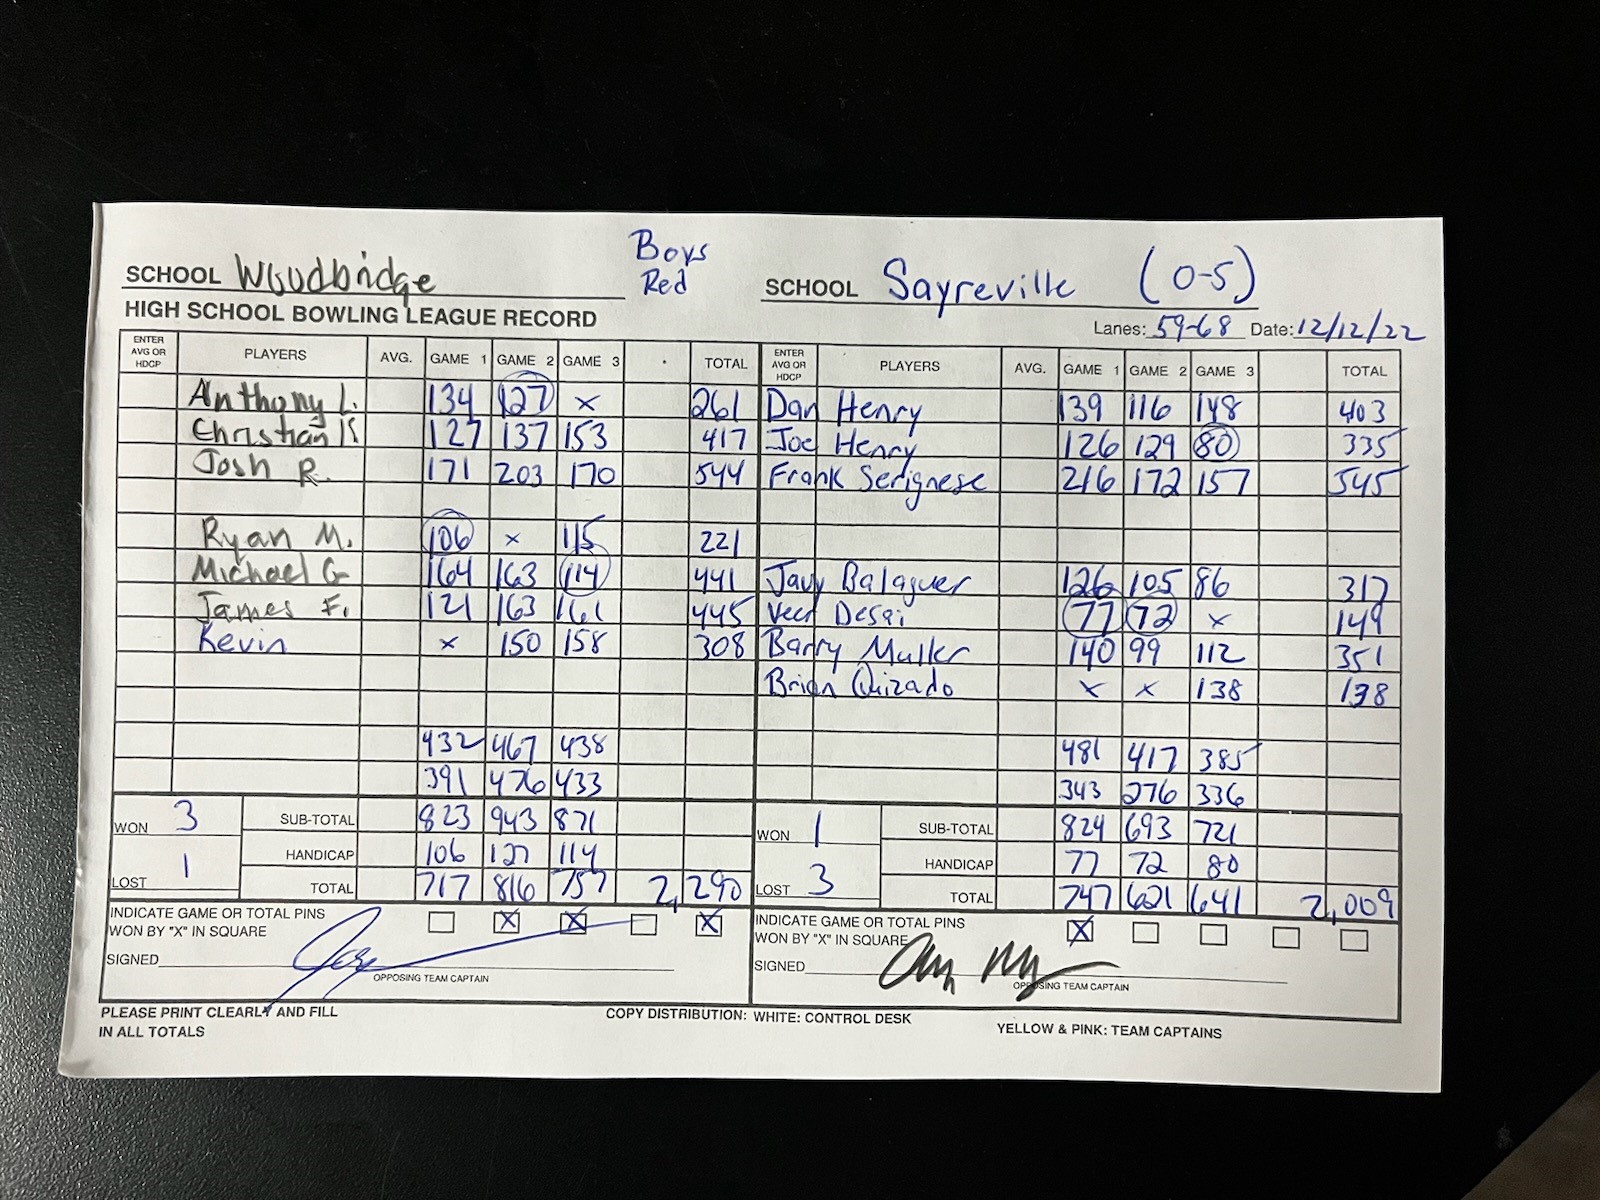 Boys
Red
SCHOOL Woodbridge SCHOOL Sayreville (0-5)
HIGH SCHOOL BOWLING LEAGUE RECORD
Lanes: 59-68 Date: 12/12/22
ENTER AVG OR HDCP PLAYERS AVG. GAME 1 GAME 2 GAME 3 TOTAL ENTER AVG OR HDCP PLAYERS AVG. GAME 1 GAME 2 GAME 3 TOTAL
Anthony L. 134 127 x 261 Dan Henry 139 116 148 403
Christian K 127 137 153 417 Joe Henry 126 129 80 335
Josh R. 171 203 170 544 Frank Serignese 216 172 157 545
Ryan M. 106 x 115 221
Michael G 164 163 114 441 Javy Balaguer 126 105 86 317
James F. 121 163 161 445 Veer Desai 77 72 x 149
Kevin x 150 158 308 Barry Muller 140 99 112 351
Brian Quizado x x 138 138
432 467 438 481 417 385
391 476 433 343 276 336
WON 3 SUB-TOTAL 823 943 871 WON 1 SUB-TOTAL 824 693 721
HANDICAP 106 127 114 HANDICAP 77 72 80
LOST 1 TOTAL 717 816 757 2,290 LOST 3 TOTAL 747 621 641 2,009
INDICATE GAME OR TOTAL PINS X X X INDICATE GAME OR TOTAL PINS X
WON BY "X" IN SQUARE WON BY "X" IN SQUARE
SIGNED SIGNED
OPPOSING TEAM CAPTAIN OPPOSING TEAM CAPTAIN
PLEASE PRINT CLEARLY AND FILL COPY DISTRIBUTION: WHITE: CONTROL DESK YELLOW & PINK: TEAM CAPTAINS
IN ALL TOTALS